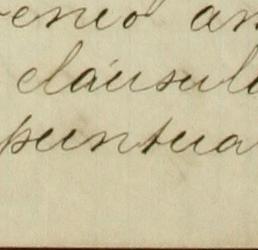 venio an
cláusula
puntua